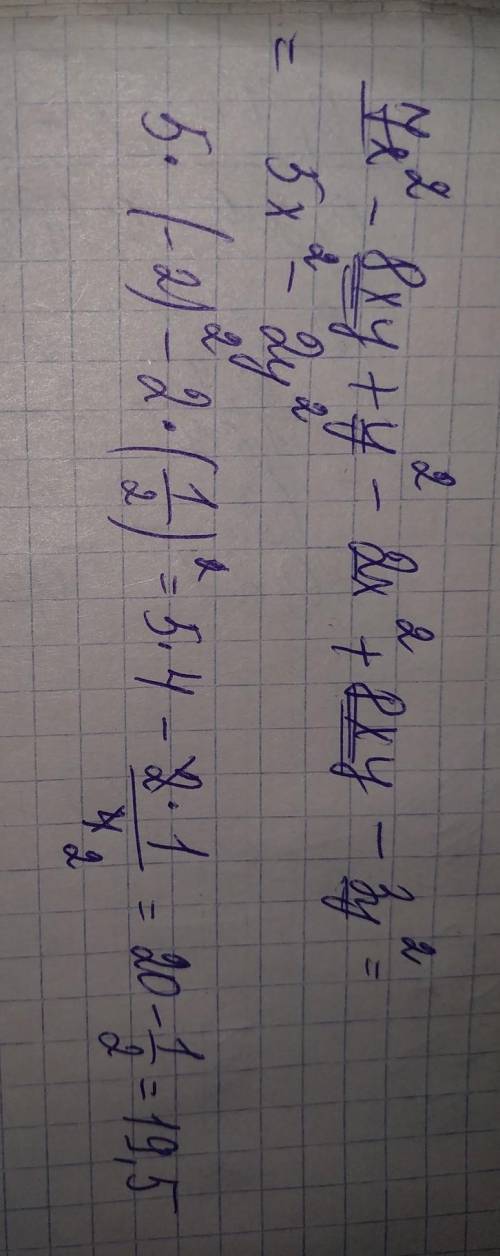 7x² - 8xy + y² - 2x² + 8xy - 3y² =
= 5x² - 2y²
5 · (-2)² - 2 · (1/2)² = 5 · 4 - (2 · 1)/4 2 = 20 - 1/2 = 19,5